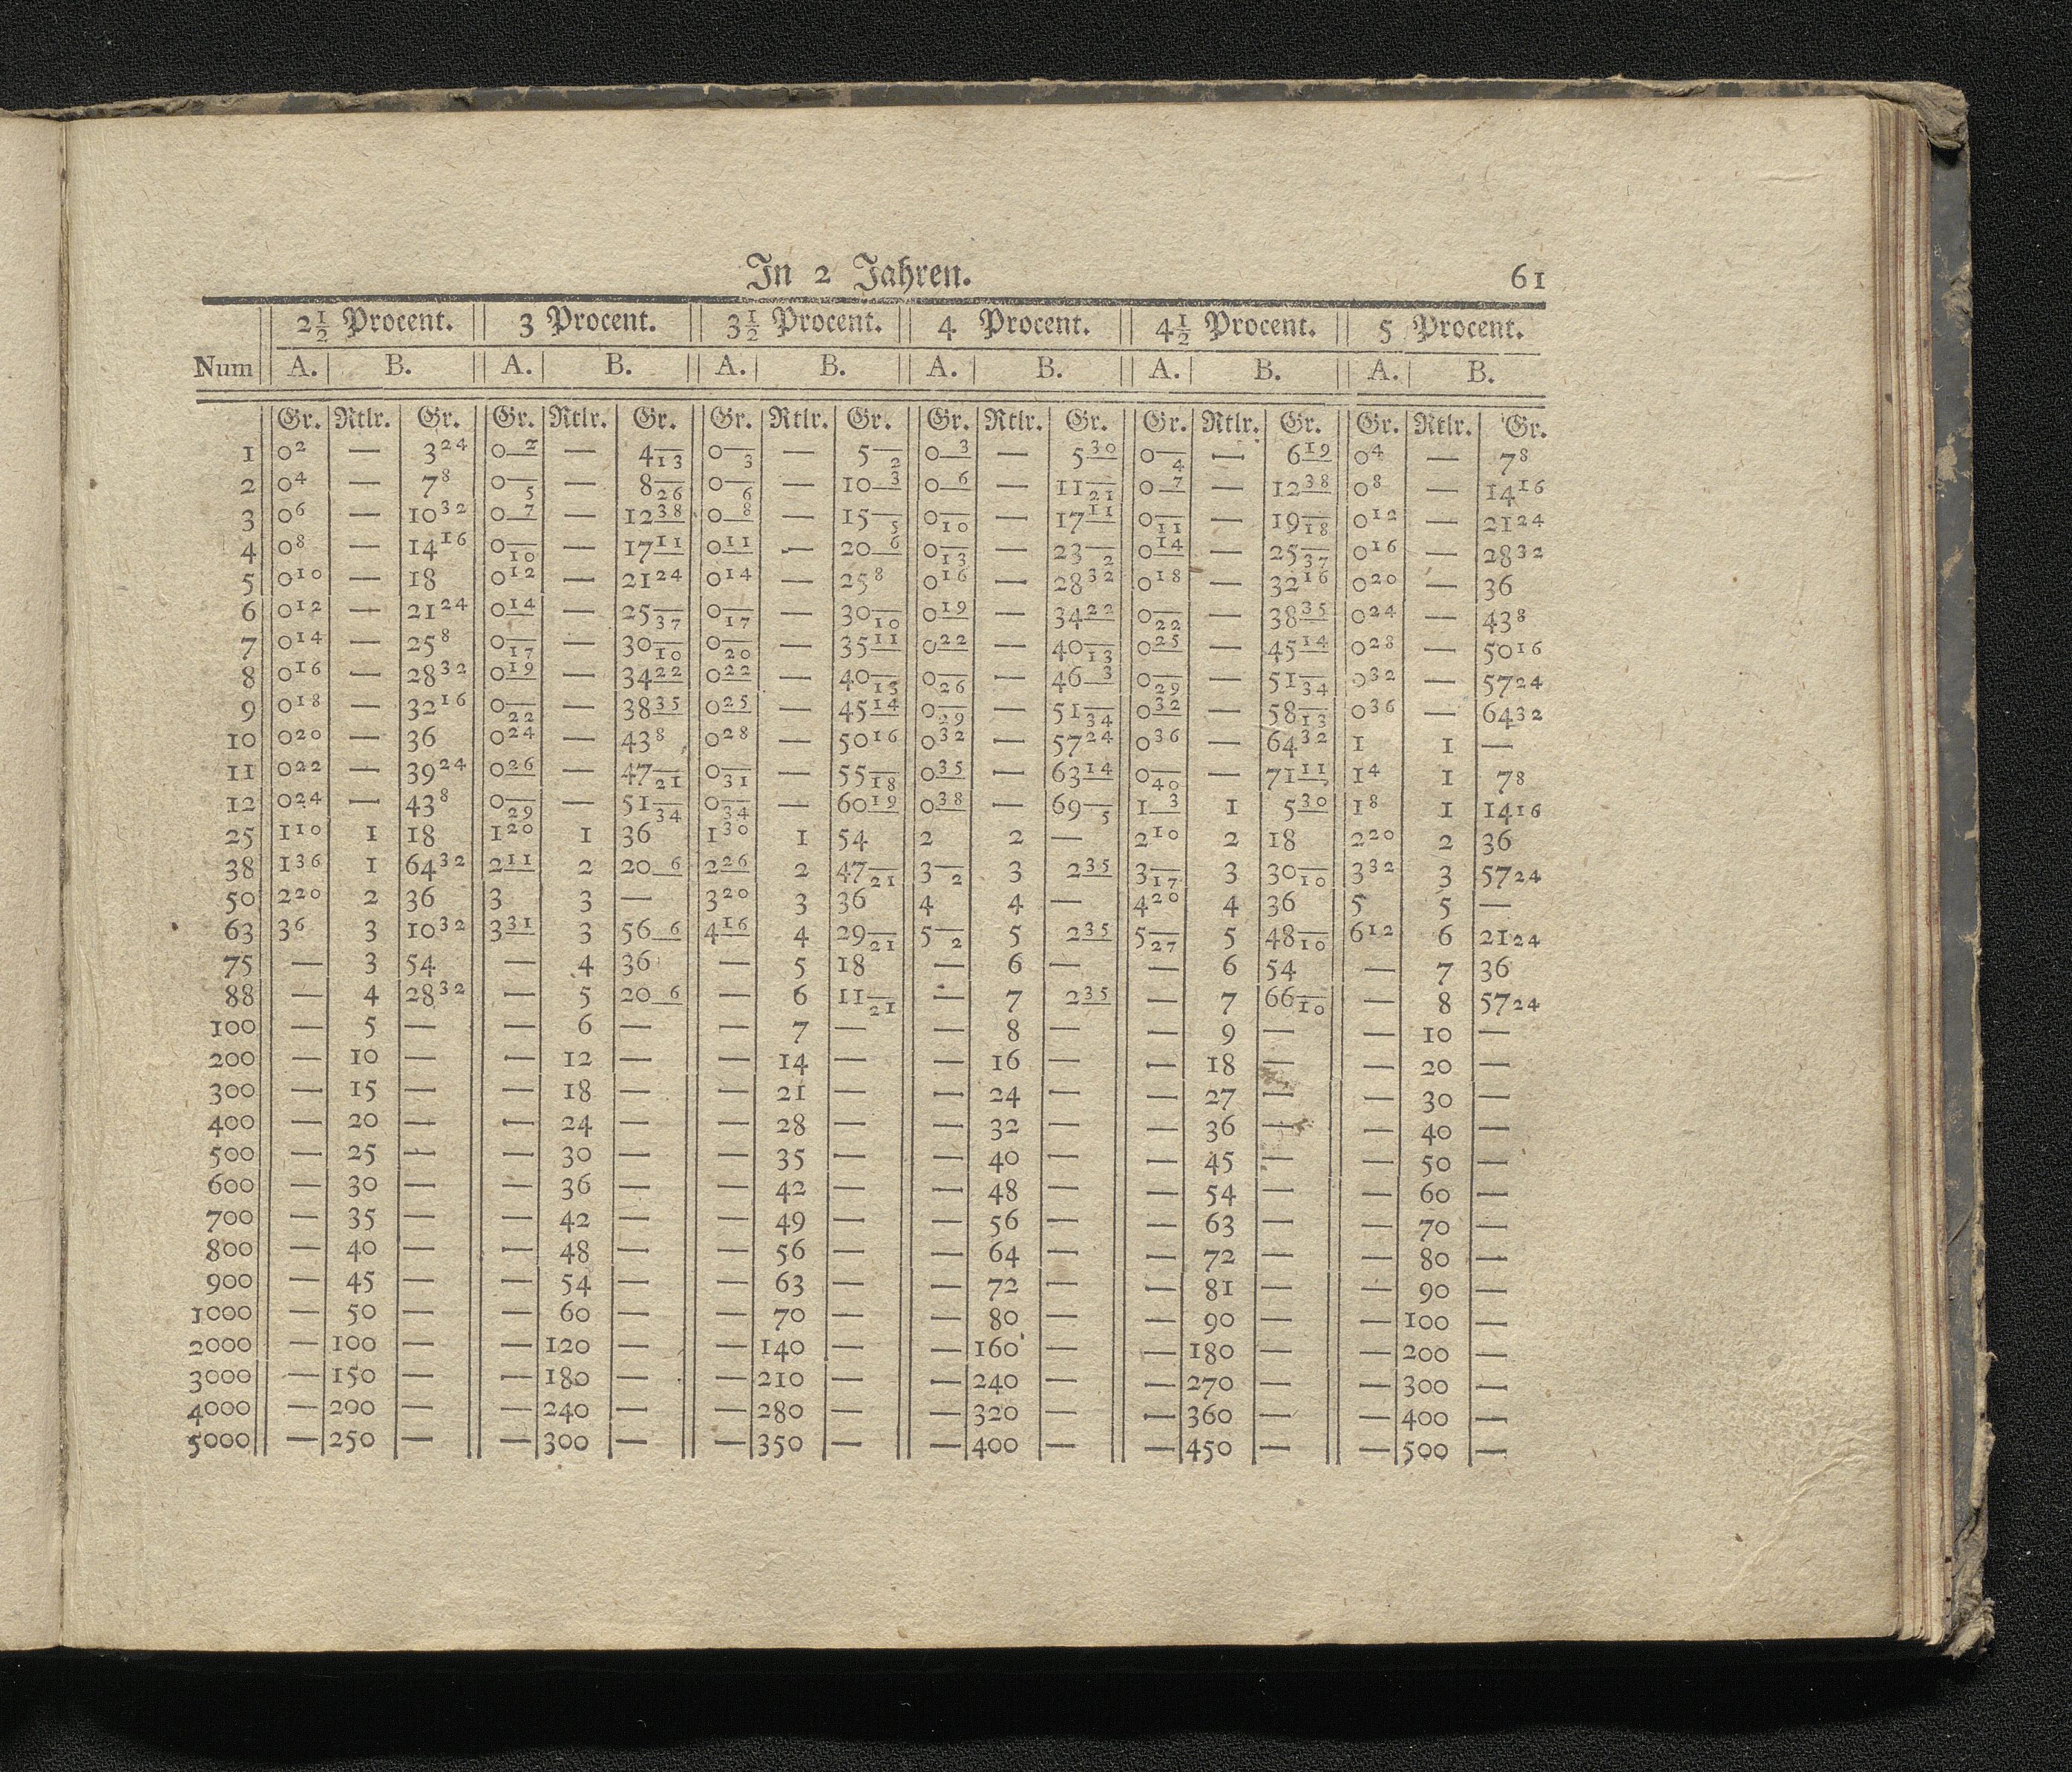 In 2 Jahren. 61
2½ Procent. 3 Procent. 3½ Procent. 4 Procent. 4½ Procent. 5 Procent.
Num A. B. A. B. A. B. A. B. A. B. A. B.
Gr. Rtlr. Gr. Gr. Rtlr. Gr. Gr. Rtlr. Gr. Gr. Rtlr. Gr. Gr. Rtlr. Gr. Gr. Rtlr. Gr.
1 0² — 3²⁴ 0² — 4₁₃ 0₃ — 5₂ 0³ — 5³⁰ 0₄ — 6¹⁹ 0⁴ — 7⁸
2 0⁴ — 7⁸ 0₅ — 8₂₆ 0₆ — 10³ 0⁶ — 11₂₁ 0⁷ — 12³⁸ 0⁸ — 14¹⁶
3 0⁶ — 10³² 0⁷ — 12³⁸ 0⁸ — 15₅ 0₁₀ — 17¹¹ 0₁₁ — 19₁₈ 0¹² — 21²⁴
4 0⁸ — 14¹⁶ 0₁₀ — 17¹¹ 0¹¹ — 20⁶ 0₁₃ — 23₂ 0¹⁴ — 25₃₇ 0¹⁶ — 28³²
5 0¹⁰ — 18 0¹² — 21²⁴ 0¹⁴ — 25⁸ 0¹⁶ — 28³² 0¹⁸ — 32¹⁶ 0²⁰ — 36
6 0¹² — 21²⁴ 0¹⁴ — 25₃₇ 0₁₇ — 30₁₀ 0¹⁹ — 34²² 0₂₂ — 38³⁵ 0²⁴ — 43⁸
7 0¹⁴ — 25⁸ 0₁₇ — 30₁₀ 0₂₀ — 35¹¹ 0²² — 40₁₃ 0²⁵ — 45¹⁴ 0²⁸ — 50¹⁶
8 0¹⁶ — 28³² 0¹⁹ — 34²² 0²² — 40₁₃ 0₂₆ — 46³ 0₂₉ — 51₃₄ 0³² — 57²⁴
9 0¹⁸ — 32¹⁶ 0₂₂ — 38³⁵ 0²⁵ — 45¹⁴ 0₂₉ — 51₃₄ 0³² — 58₁₃ 0³⁶ — 64³²
10 0²⁰ — 36 0²⁴ — 43⁸ 0²⁸ — 50¹⁶ 0³² — 57²⁴ 0³⁶ — 64³² 1 1 —
11 0²² — 39²⁴ 0²⁶ — 47₂₁ 0₃₁ — 55₁₈ 0³⁵ — 63¹⁴ 0₄₀ — 71¹¹ 1⁴ 1 7⁸
12 0²⁴ — 43⁸ 0₂₉ — 51₃₄ 0₃₄ — 60¹⁹ 0³⁸ — 69₅ 1³ 1 5³⁰ 1⁸ 1 14¹⁶
25 1¹⁰ 1 18 1²⁰ 1 36 1³⁰ 1 54 2 2 — 2¹⁰ 2 18 2²⁰ 2 36
38 1³⁶ 1 64³² 2¹¹ 2 20⁶ 2²⁶ 2 47₂₁ 3₂ 3 2³⁵ 3₁₇ 3 30₁₀ 3³² 3 57²⁴
50 2²⁰ 2 36 3 3 — 3²⁰ 3 36 4 4 — 4²⁰ 4 36 5 5 —
63 3⁶ 3 10³² 3³¹ 3 56⁶ 4¹⁶ 4 29₂₁ 5₂ 5 2³⁵ 5₂₇ 5 48₁₀ 6¹² 6 21²⁴
75 — 3 54 — 4 36 — 5 18 — 6 — — 6 54 — 7 36
88 — 4 28³² — 5 20⁶ — 6 11₂₁ — 7 2³⁵ — 7 66₁₀ — 8 57²⁴
100 — 5 — — 6 — — 7 — — 8 — — 9 — — 10 —
200 — 10 — — 12 — — 14 — — 16 — — 18 — — 20 —
300 — 15 — — 18 — — 21 — — 24 — — 27 — — 30 —
400 — 20 — — 24 — — 28 — — 32 — — 36 — — 40 —
500 — 25 — — 30 — — 35 — — 40 — — 45 — — 50 —
600 — 30 — — 36 — — 42 — — 48 — — 54 — — 60 —
700 — 35 — — 42 — — 49 — — 56 — — 63 — — 70 —
800 — 40 — — 48 — — 56 — — 64 — — 72 — — 80 —
900 — 45 — — 54 — — 63 — — 72 — — 81 — — 90 —
1000 — 50 — — 60 — — 70 — — 80 — — 90 — — 100 —
2000 — 100 — — 120 — — 140 — — 160 — — 180 — — 200 —
3000 — 150 — — 180 — — 210 — — 240 — — 270 — — 300 —
4000 — 200 — — 240 — — 280 — — 320 — — 360 — — 400 —
5000 — 250 — — 300 — — 350 — — 400 — — 450 — — 500 —